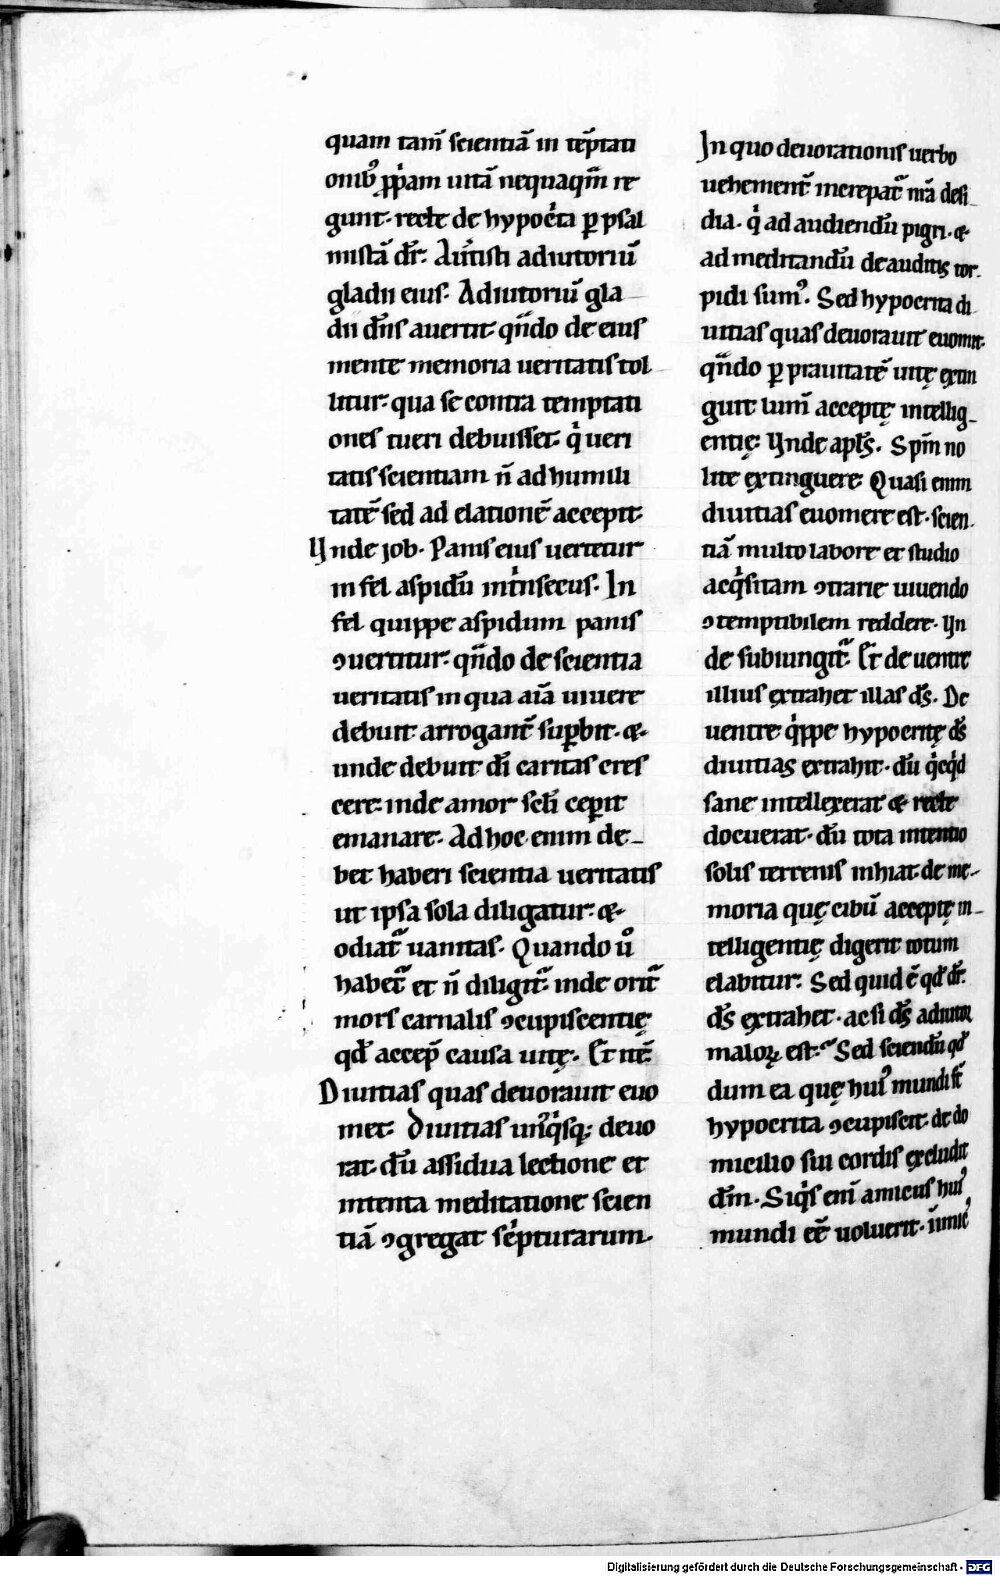 quam tam̄ scientiā in tēptati
onib᷒ ꝓpͥam uitā nequaqͣm re
gunt. recte de hypocͥta ꝑ psal
mistā dr̄. Aūtisti adiutoriū
gladii eius. Adiutoriū gla
dii dn̄s auertit qn̄do de eius
mente memoria ueritatis tol
litur. qua se contra temptati
ones tueri debuisset. qͥ ueri
tatis scientiam n̄ ad humili
tatē sed ad elationē accepit.
Vnde job. Panis eius uertetur
in fel aspidū intͥnsecus. In
fel quippe aspidum panis
ꝯuertitur. qn̄do de scientia
ueritatis in qua aīa uiuere
debuit arrogant̄ suꝑbit. &
unde debuit dī caritas cres
cere. inde amor scłi cepit
emanare. Ad hoc enim de
bet haberi scientia ueritatis
ut ipsa sola diligatur. &
odiat᷑ uanitas. Quando u̾o
habet᷑ et n̄ diligit᷑. inde orit᷑
mors carnalis ꝯcupiscentię
qd̄ accep̄ causa uitę. Et nt̄.
Diuitias quas deuorauit euo
met. Diuitias un᷒qͥsq; deuo
rat. dū assidua lectione et
intenta meditatione scien
tiā ꝯgregat scͥpturarum.
In quo deuorationis uerbo
uehement̄ increpat᷑ nr̄a desi
dia. qͥ ad audiendū pigri. &
ad meditandū de auditis tor
pidi sum᷒. Sed hypocrita di
uitias quas deuorauit euomit.
qn̄do ꝑ prauitatē uitę extin
guit lum̄ acceptę intellig
entię. Vnde apłs. Spm̄ no
lite extinguere. Quasi enim
diuitias euomere est. scien
tiā multo labore et studio
acqͥsitam ꝯtrarie uiuendo
ꝯtemptibilem reddere. Vn
de subiungit᷑. Et de uentre
illius extrahet illas ds̄. De
uentre qͥppe hypocritę ds̄
diuitias extrahit. dū qͥcqͥd
sane intellexerat & recte
docuerat. dū tota intentio
solis terrenis inhiat. de me
moria quę cibū acceptę in
telligentię digerit totum
elabitur. Sed quid ē qd̄ dr̄.
ds̄ extrahet. ac si ds̄ adiutor
malorꝝ est. Sed sciendū qd̄
dum ea quę hui᷒ mundi st̄
hypocrita ꝯcupiscit. de do
micilio sui cordis excludit
dm̄. Siqͥs enī amicus hui᷒
mundi eē uoluerit. inimic᷒